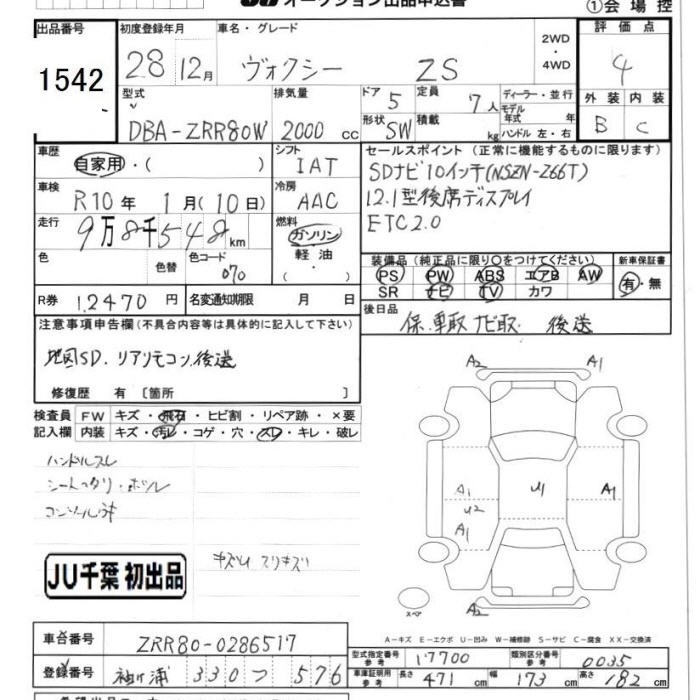 オークション出品申込書
①会場控
出品番号 1542
初度登録年月 28 12月
車名・グレード ヴォクシー ZS
2WD・4WD
評価点 4
型式 DBA-ZRR80W
排気量 2000 cc
ドア 5
定員 7人
形状 SW
積載 kg
ディーラー・並行
モデル年式 年
ハンドル 左・右
外装 B
内装 C
車歴 自家用・( )
シフト IAT
車検 R10年 1月(10日)
冷房 AAC
走行 9万8千548km
燃料 ガソリン 軽油・( )
色 色替
色コード 070
R券 12470円
名変通知期限 月 日
セールスポイント (正常に機能するものに限ります)
SDナビ10インチ(NSZN-Z66T)
12.1型後席ディスプレイ
ETC2.0
装備品(純正品に限り○をつけてください)
PS PW ABS エアB AW
SR ナビ TV カワ
新車保証書 有・無
後日品 保.車取 ナビ取. 後送
注意事項申告欄(不具合内容等は具体的に記入して下さい)
地図SD. リアリモコン後送
修復歴 有 〔箇所 〕
検査員記入欄
FW キズ・飛石・ヒビ割・リペア跡・×要
内装 キズ・汚レ・コゲ・穴・スレ・キレ・破レ
ハンドルスレ
コンソールキ
キズU スリキズ
JU千葉 初出品
A2 A1
A1 U1 A1
U2
A1
A2
スペア
A-キズ E-エクボ U-凹み W-補修跡 S-サビ C-腐食 XX-交換済
車台番号 ZRR80-0286517
登録番号 袖ヶ浦 330 つ 576
型式指定番号 参考 17700
類別区分番号 参考 0035
車庫証明用 参考 長さ 471 cm 幅 173 cm 高さ 182 cm